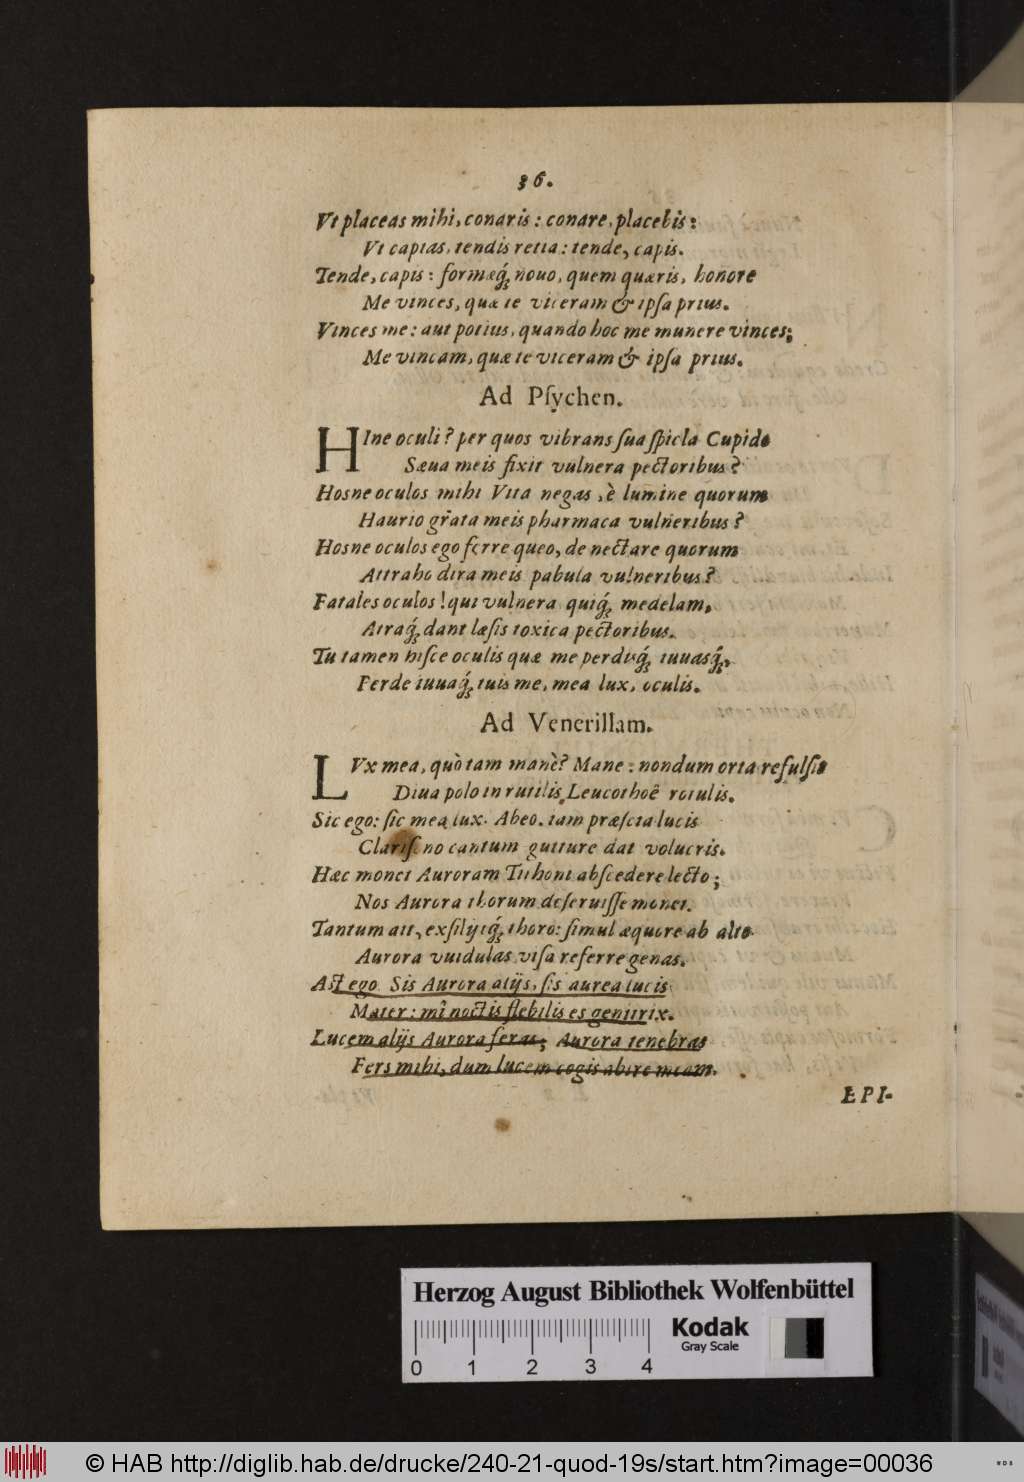 36.
Vt placeas mihi, conaris: conare, placebis:
Vt capias, tendis retia: tende, capis.
Tende, capis: formæq́ʒ nouo, quem quæris, honore
Me vinces, quæ te viceram & ipſa prius.
Vinces me: aut potius, quando hoc me munere vinces;
Me vincam, quæ te viceram & ipſa prius.
Ad Pſychen.
HIne oculi? per quos vibrans ſua ſpicla Cupido
Sæua meis fixit vulnera pectoribus?
Hosne oculos mihi Vita negas, è lumine quorum
Haurio grata meis pharmaca vulneribus?
Hosne oculos ego ferre queo, de nectare quorum
Attraho dira meis pabula vulneribus?
Fatales oculos! qui vulnera quiq́ʒ medelam,
Atraq́ʒ dant læſis toxica pectoribus.
Tu tamen hiſce oculis quæ me perdisq́ʒ iuuasq́ʒ,
Perde iuuaq́ʒ tuis me, mea lux, oculis.
Ad Venerillam.
LVx mea, quò tam manè? Mane: nondum orta refulſit
Diua polo in rutilis Leucothoê rotulis.
Sic ego: ſic mea lux. Abeo. iam præſcia lucis
Clariſono cantum gutture dat volucris.
Hæc monet Auroram Tithoni abſcedere lecto;
Nos Aurora thorum deſeruiſſe monet.
Tantum ait, exſilijtq́ʒ thoro: ſimul æquore ab alto
Aurora vuidulas viſa referre genas.
Aſt ego. Sis Aurora alijs, ſis aurea lucis
Mater: mî noctis flebilis es genitrix.
Lucem alijs Aurora feras; Aurora tenebras
Fers mihi, dum lucem cogis abire meam.
EPI-
Herzog August Bibliothek Wolfenbüttel
0 1 2 3 4
Kodak
Gray Scale
© HAB http://diglib.hab.de/drucke/240-21-quod-19s/start.htm?image=00036